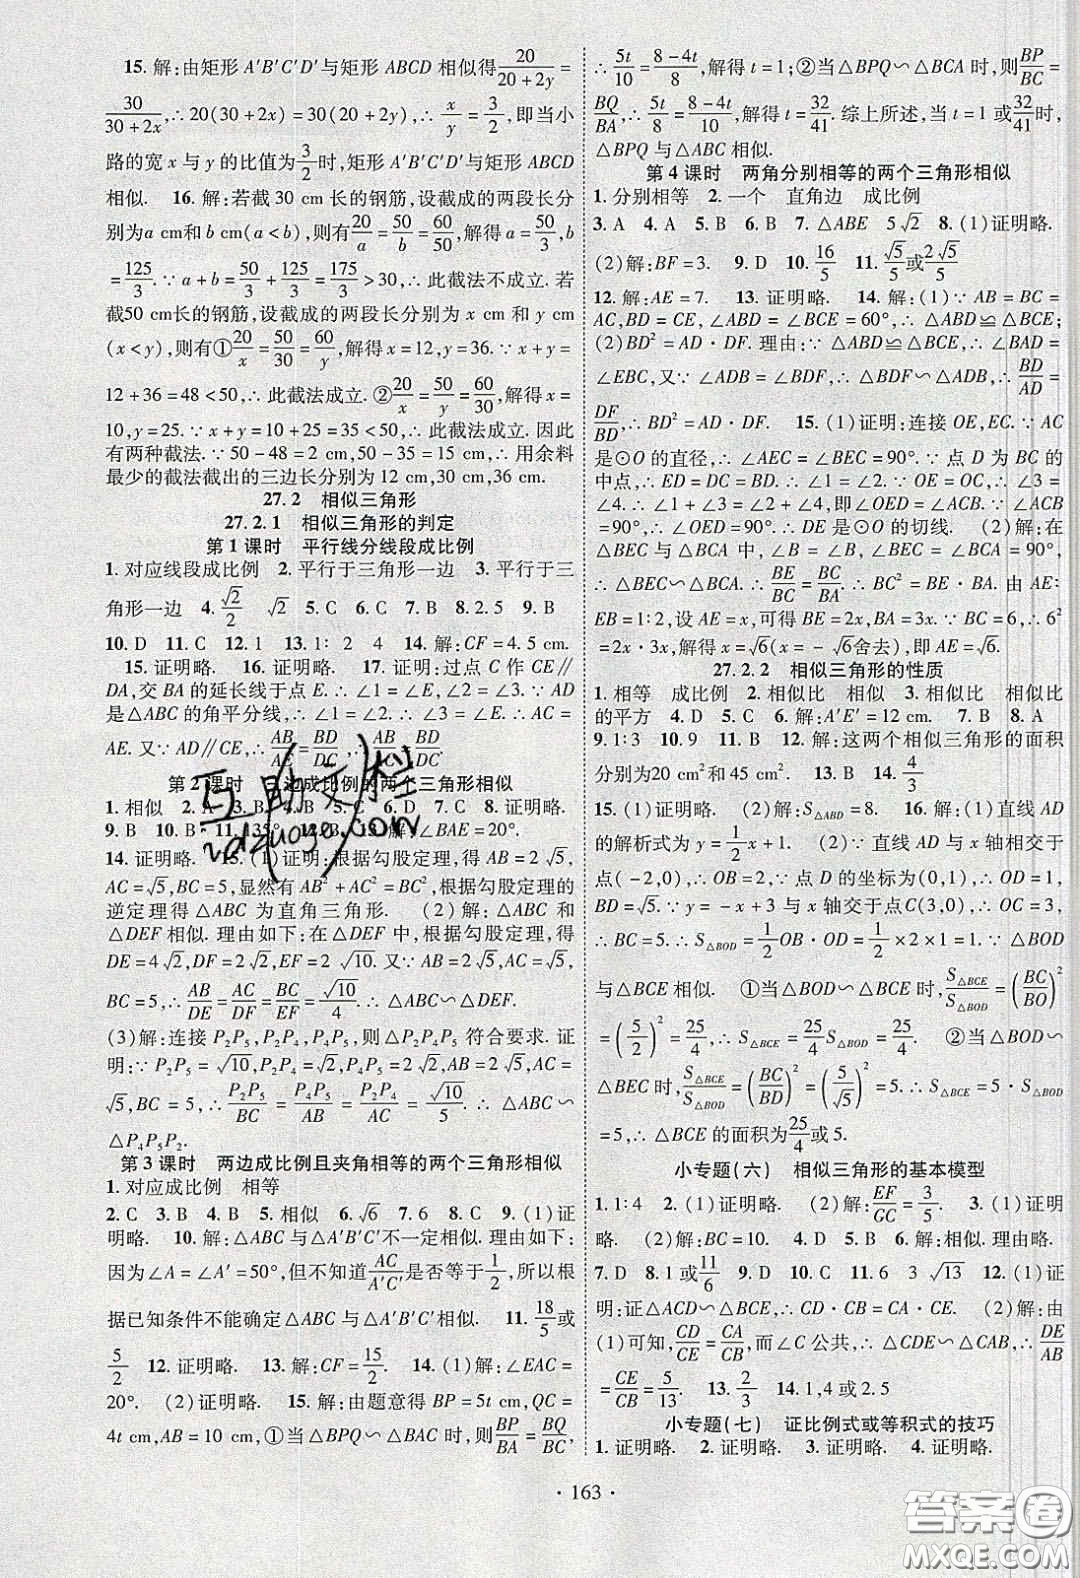 15. 解:由矩形 A'B'C'D'与矩形 ABCD 相似得20/(20+2y)=
30/(30+2x),∴20(30+2x)=30(20+2y),∴x/y=3/2,即当小
路的宽 x 与 y 的比值为3/2时,矩形 A'B'C'D'与矩形 ABCD
相似. 16. 解:若截 30 cm 长的钢筋,设截成的两段长分
别为a cm和 b cm(a<b),则有20/a=50/b=60/50,解得 a=50/3,b
=125/3.∵a+b=50/3+125/3=175/3>30,∴此截法不成立.若
截50 cm长的钢筋,设截成的两段长分别为 x cm 和 y cm
(x<y),则有①20/x=50/30=60/y,解得 x=12,y=36.∵x+y=
12+36=48<50,∴此截法成立.②20/x=50/y=60/30,解得x=
10,y=25.∵x+y=10+25=35<50,∴此截法成立.因此
有两种截法.∵50-48=2 cm<50-35=15 cm,∴用余料
最少的截法截出的三边长分别为 12 cm,30 cm,36 cm.
27.2 相似三角形
27.2.1 相似三角形的判定
第 1 课时 平行线分线段成比例
1. 对应线段成比例 2. 平行于三角形一边 3. 平行于三
角形一边 4. √2/2 √2 5. C 6. C 7. B 8. 2.5 9. B
10. D 11. C 12. 1 13. 1∶2 4 14. 解:CF=4.5 cm.
15. 证明略. 16. 证明略. 17. 证明:过点 C 作 CE∥
DA,交 BA 的延长线于点 E.∴∠1=∠E,∠2=∠3.∵AD
是△ABC 的角平分线,∴∠1=∠2.∴∠3=∠E.∴AC=
AE.又∵AD∥CE,∴AB/AE=BD/DC,∴AB/AC=BD/DC.
第 2 课时 三边成比例的两个三角形相似
1. 相似 2. A 3. B 4. B 5. B 6. D 7. C 8. C
9. B 10. B 11. 135° 12. B 13. 解:∠BAE=20°.
14. 证明略. 15. (1)证明:根据勾股定理,得 AB=2√5,
AC=√5,BC=5,显然有 AB²+AC²=BC²,根据勾股定理的
逆定理得△ABC 为直角三角形. (2)解:△ABC 和
△DEF 相似.理由如下:在△DEF 中,根据勾股定理,得
DE=4√2,DF=2√2,EF=2√10.又∵AB=2√5,AC=√5,
BC=5,∴AB/DE=AC/DF=BC/EF=√10/4,∴△ABC∽△DEF.
(3)解:连接 P₂P₅,P₂P₄,P₄P₅,则△P₂P₄P₅ 符合要求.证
明:∵P₂P₅=√10,P₂P₄=√2,P₄P₅=2√2,AB=2√5,AC=
√5,BC=5,∴P₂P₅/BC=P₄P₅/AB=P₂P₄/AC=√10/5.∴△ABC∽
△P₄P₅P₂.
第 3 课时 两边成比例且夹角相等的两个三角形相似
1. 对应成比例 相等
2. C 3. B 4. B 5. 相似 6. √6 7. 6 8. C 9. (1)证
明略. 10. 解:△ABC 与△A'B'C'不一定相似.理由如下:
因为∠A=∠A'=50°,但不知道AC/A'C'是否等于1/2,所以不能
根据已知条件不能确定△ABC 与△A'B'C'相似. 11. 18/5或
5/2 12. 证明略. 13. 解:CF=15/2. 14. (1)解:∠EAC=
20°. (2)证明略. 15. 解:由题意得 BP=5t cm,QC=
4t cm,AB=10 cm,①当△BPQ∽△BAC 时,则BP/BA=BQ/BC,
∴5t/10=(8-4t)/8,解得 t=1;②当△BPQ∽△BCA 时,则BP/BC=
BQ/BA,∴5t/8=(8-4t)/10,解得 t=32/41.综上所述,当 t=1 或32/41时,
△BPQ 与△ABC 相似.
第 4 课时 两角分别相等的两个三角形相似
1. 分别相等 2. 一个 直角边 成比例
3. A 4. A 5. B 6. B 7. △ABE 5√2 8. (1)证明略.
(2)解:BF=3. 9. D 10. 16/5 11. √5/5或2√5/5
12. 解:AE=7. 13. 证明略. 14. 解:(1)∵AB=BC=
AC,BD=CE,∠ABD=∠BCE=60°,∴△ABD≌△BCE;
(2)BD²=AD·DF.理由:∵△ABD≌△BCE,∴∠BAD=
∠EBC,又∵∠ADB=∠BDF,∴△BDF∽△ADB,∴BD/AD=
DF/BD,∴BD²=AD·DF. 15. (1)证明:连接 OE,EC.∵AC
是⊙O 的直径,∴∠AEC=∠BEC=90°.∵点 D 为 BC 的
中点,∴ED=DC=BD.∴∠1=∠2.∵OE=OC,∴∠3=
∠4.∴∠1+∠3=∠2+∠4,即∠OED=∠ACB.∵∠ACB
=90°,∴∠OED=90°.∴DE 是⊙O 的切线. (2)解:在
△BEC 与△BCA 中,∠B=∠B,∠BEC=∠BCA=90°,
∴△BEC∽△BCA.∴BE/BC=BC/BA.∴BC²=BE·BA.由 AE∶
EB=1∶2,设 AE=x,可得 BE=2x,BA=3x.∵BC=6,∴6²
=2x·3x,解得 x=√6(x=-√6舍去),即 AE=√6.
27.2.2 相似三角形的性质
1. 相等 成比例 2. 相似比 相似 3. 相似比 相似比
的平方 4. D 5. C 6. 解:A'E'=12 cm. 7. B 8. A
9. 1∶3 10. 9 11. B 12. 解:这两个相似三角形的面积
分别为20 cm²和 45 cm². 13. A 14. 4/3
15. (1)证明略. (2)解:S△ABD=8. 16. 解:(1)直线 AD
的解析式为 y=1/2x+1. (2)∵直线 AD 与 x 轴相交于
点(-2,0),∴OB=2.∵点 D 的坐标为(0,1),∴OD=1,
BD=√5.∵y=-x+3 与 x 轴交于点C(3,0),∴OC=3,
∴BC=5.∴S△BOD=1/2OB·OD=1/2×2×1=1.∵△BOD
与△BCE 相似. ①当△BOD∽△BCE 时,S△BCE/S△BOD=(BC/BO)²
=(5/2)²=25/4,∴S△BCE=25/4S△BOD=25/4. ②当△BOD∽
△BEC 时,S△BCE/S△BOD=(BC/BD)²=(5/√5)²=5.∴S△BCE=5·S△BOD
=5,∴△BCE 的面积为25/4或5.
小专题(六) 相似三角形的基本模型
1. 1∶4 2. (1)证明略. (2)解:EF/GC=3/5. 3. (1)证明
略. (2)解:BC=10. 4. D 5. B 6. 解:相似.理由略.
7. D 8. 1 或11/6 9. D 10. C 11. 6 3 √13 12. (1)证
明:证△ACD∽△BCE,∴CD·CB=CA·CE. (2)解:由
(1)可知,CD/CE=CA/CB,而∠C 公共,∴△CDE∽△CAB,∴DE/AB
=CE/CB=5/13. 13. 2/3 14. 1,4 或 2.5
小专题(七) 证比例式或等积式的技巧
1. 证明略. 2. 证明略. 3. 证明略. 4. 证明略.
· 163 ·
互助文档
nazuoye.com
答案圈
MXQE.COM